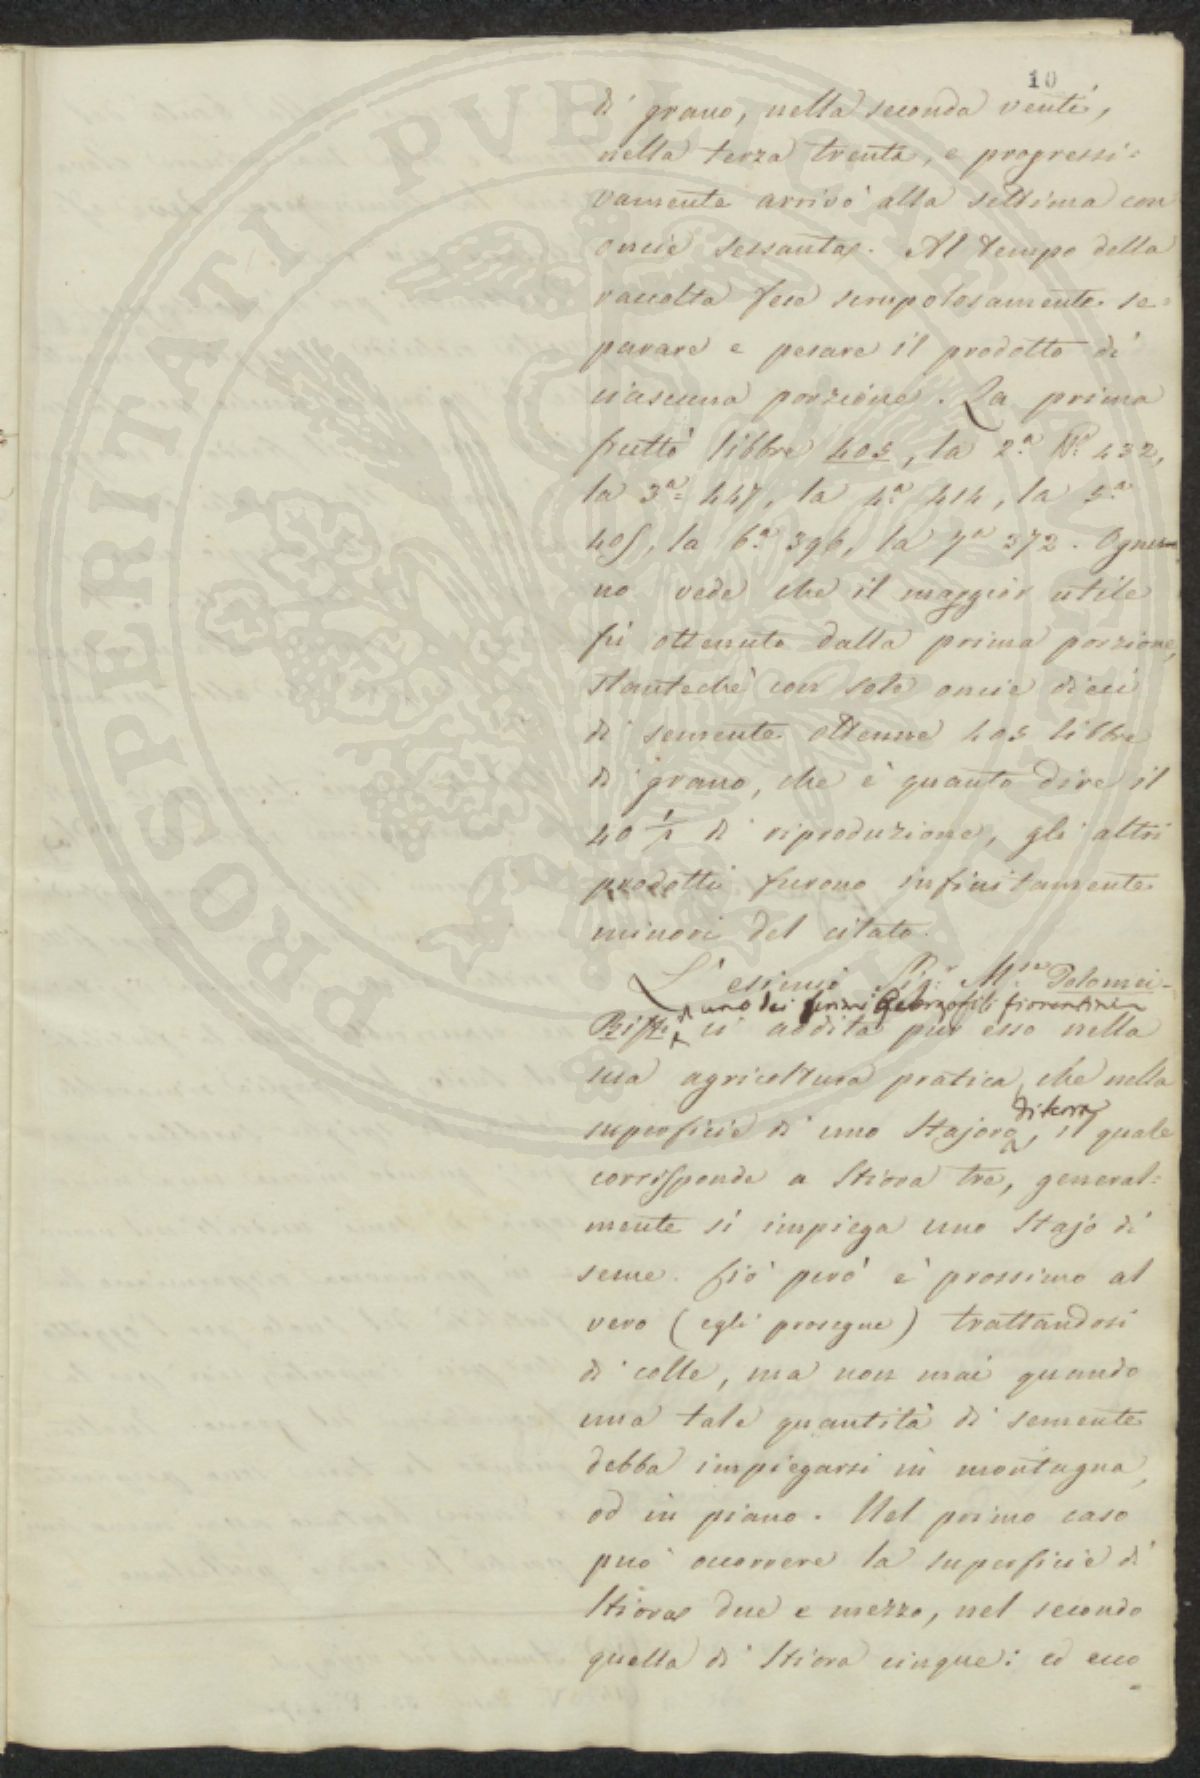 10
di grano, nella seconda venti,
nella terza trenta, e progressi=
vamente arrivò alla settima con
oncie sessanta. Al tempo della
raccolta fece scrupolosamente se=
parare e pesare il prodotto di
ciascuna porzione. La prima
fruttò libbre 405, la 2.ª N.º 432,
la 3.ª 447, la 4.ª 414, la 5.ª
405, la 6.ª 396, la 7.ª 372. Ognu=
no vede che il maggior utile
fù ottenuto dalla prima porzione,
stantechè con sole oncie dieci
di semente ottenne 405 libbre
di grano, che è quanto dire il
40 1/2 di riproduzione, gli altri
prodotti furono infinitamente
minori del citato.
L'esimio Sig.r M.se Tolomei-
uno dei primi Georgofili fiorentini
ci addita pur esso nella
sua agricoltura pratica, che nella
di terra
superficie di uno Stajoro, il quale
corrisponde a Stiora tre, general=
mente si impiega uno Stajo di
seme. Ciò però è prossimo al
vero (egli prosegue) trattandosi
di colle, ma non mai quando
una tale quantità di semente
debba impiegarsi in montagna,
od in piano. Nel primo caso
può occorrere la superficie di
Stiora due e mezzo, nel secondo
quella di Stiora cinque: ed ecco
PROSPERITATI PUBLICAE AUGENDAE